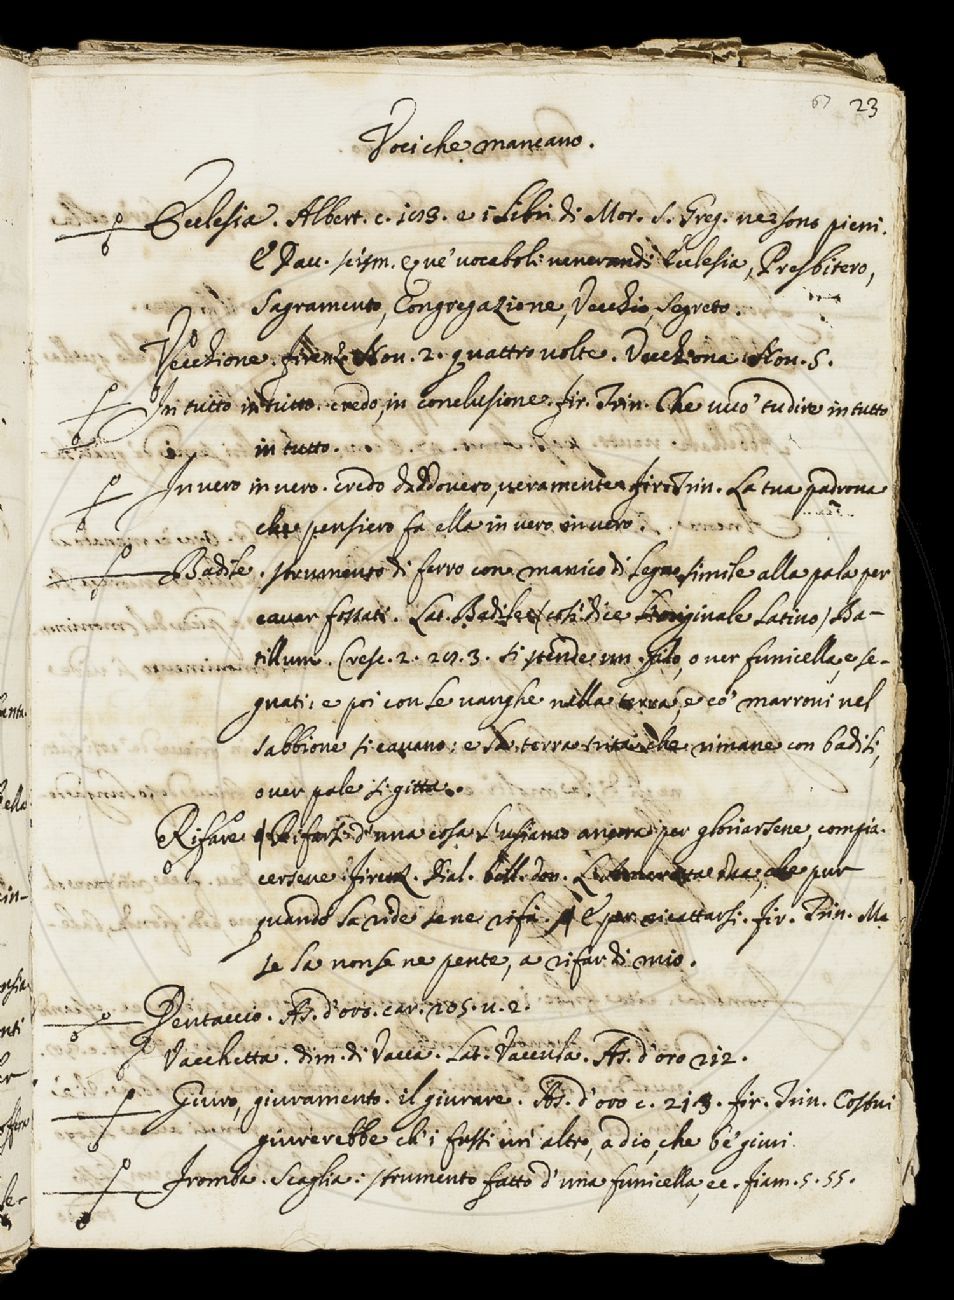 67 23
Voci che mancano.
Ecclesia. Albert. c. 108. e i Libri di Mor. S. Greg. ne sono pieni.
E Dav. scism. e que' vocaboli venerandi Ecclesia, Presbitero,
Sagramento, Congregazione, Vecchio, segreto.
Vecchione. Firenz. Nov. 2. quattro volte. Vecchiona Nov. 5.
In tutto in tutto. credo, in conclusione. Fir. Trin. Che vuo' tu dire in tutto
in tutto.
In vero in vero. credo daddovero, veramente. Fir. Trin. La tua padrona
che pensiero fa ella in vero in vero.
Badile. strumento di ferro con manico di legno simile alla pala per
cavar fossati. Lat. Badile (così dice l'originale Latino) Ba-
tillum. Cresc. 2. 20. 3. si stende un filo, over funicella, e se-
guati; e poi con le vanghe nella terra, e co' marroni nel
sabbione si cavano: e la terra trita che rimane con badili,
over pale si gitta.
Rifare Rifarsi d'una cosa l'usiamo ancora per gloriarsene, compia-
cersene. Firenz. Dial. bell. don. che pur
quando la ride se ne rifà. E per ricattarsi. Fir. Trin. Ma
se la non se ne pente, a rifar di mio.
Pentaccio. As. d'oro. car. 205. u. 2.
Vacchetta. dim. di Vacca. Lat. Vaccula. As. d'oro 212.
Giuro, giuramento. il giurare. As. d'oro c. 213. Fir. Trin. Costui
giurerebbe ch'i fussi un' altro, a dio, che be' giuri.
Fromba. Scaglia: strumento fatto d'una funicella, ec. Fiam. 5. 55.